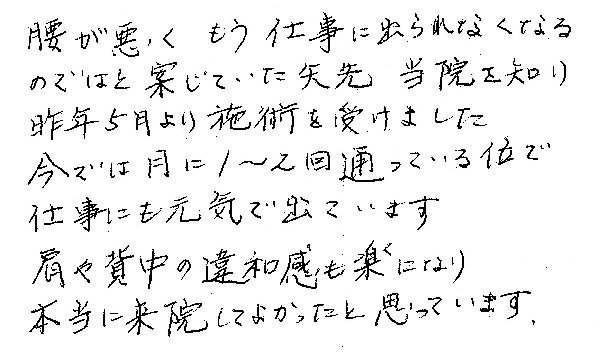 腰が悪く もう仕事に出られなくなる
のではと案じていた矢先 当院を知り
昨年5月より施術を受けました
今では月に1~2回通っている位で
仕事にも元気で出ています
肩や背中の違和感も楽になり
本当に来院してよかったと思っています.